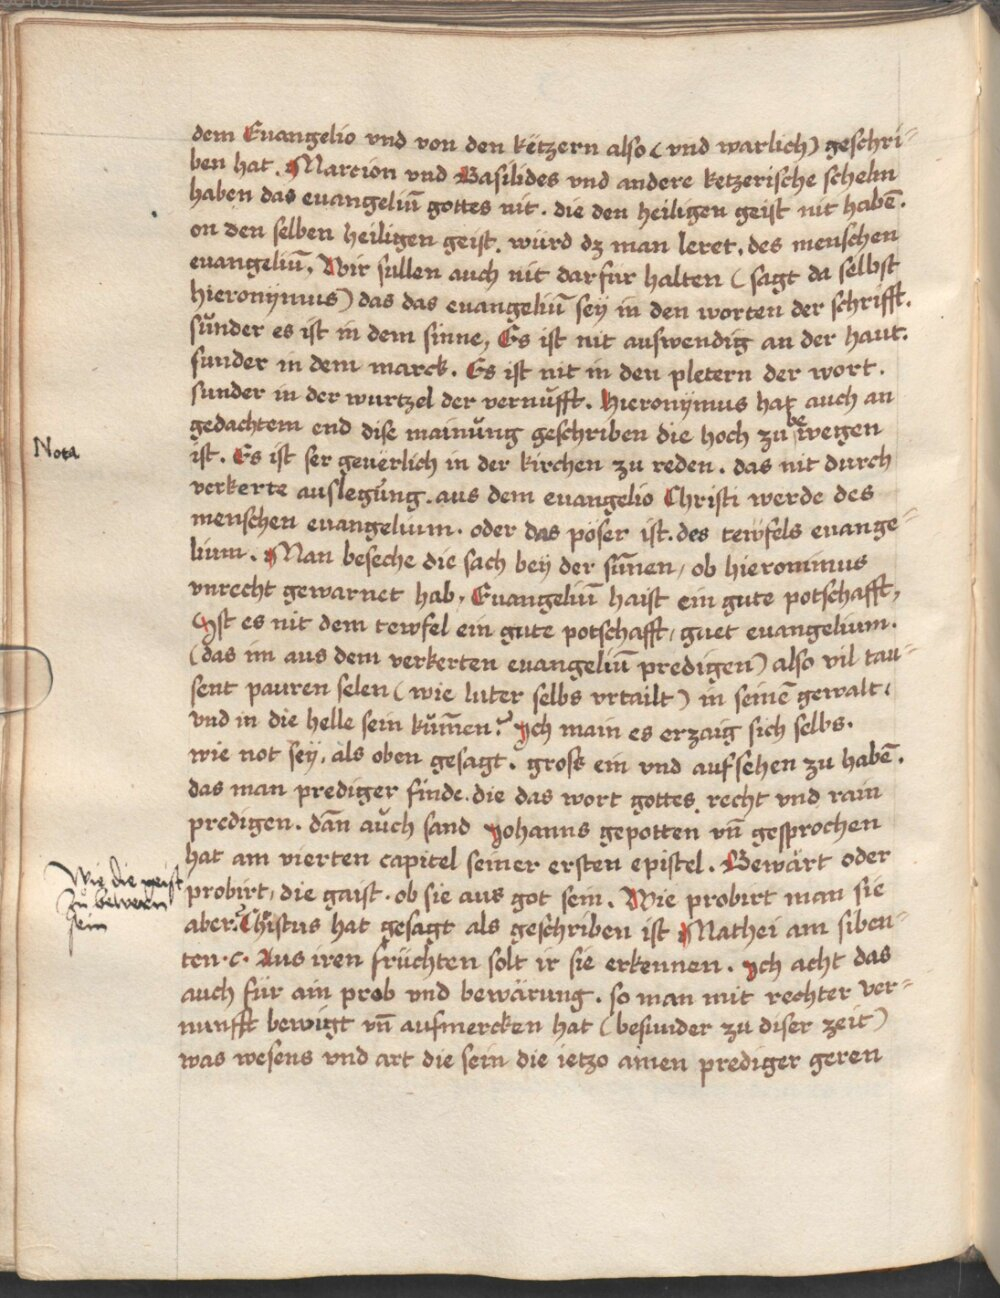 dem Euangelio vnd von den ketzern also (vnd warlich) geschri-
ben hat. Marcion vnd Basilides vnd andere ketzerische schelm
haben das euangeliu᷑m gottes nit. die den heiligen geist nit habē.
on den selben heiligen geist. würd dz man leret, des menschen
euangeliū, Wir sullen auch nit darfur halten (sagt da selbst
hieronÿmus) das das euangeliū seÿ in den worten der schrifft.
sunder es ist in dem sinne, Es ist nit auswendig an der haut.
sunder in dem marck. Es ist nit in den pletern der wort.
sunder in der wurtzel der vernufft. Hieronÿmus hat auch an
gedachtem end dise mainung geschriben die hoch zu bewegen
Nota
ist. Es ist ser geuerlich in der kirchen zu reden. das nit durch
verkerte auslegung. aus dem euangelio Christi werde des
menschen euangelium. oder das pöser ist. des tewfels euange-
lium. Man beseche die sach beÿ der sūnen, ob hieronimus
vnrecht gewarnet hab, Euangeliū haist ein gute potschafft,
Ist es nit dem tewfel ein gute potschafft, guet euangelium.
(das im aus dem verkerten euangeliū predigen) also vil tau-
sent pauren selen (wie luter selbs vrtailt) in seinē gewalt,
vnd in die helle sein kūmen? Ich main es erzaig sich selbs.
wie not seÿ, als oben gesagt. gross ein vnd aufsehen zu habē.
das man prediger finde. die das wort gottes recht vnd rain
predigen. dān auch sand Johanns gepotten vn̄ gesprochen
hat am vierten capitel seiner ersten epistel. Bewärt oder
Wie die geist
zu bewern
sein
probirt, die gaist. ob sie aus got sein. Wie probirt man sie
aber? Christus hat gesagt als geschriben ist Mathei am siben-
ten. c. Aus iren früchten solt ir sie erkennen. Ich acht das
auch für ain prob vnd bewärung. so man mit rechter ver-
nunfft bewigt vn̄ aufmercken hat (besunder zu diser zeit)
was wesens vnd art die sein die ietzo ainen prediger geren